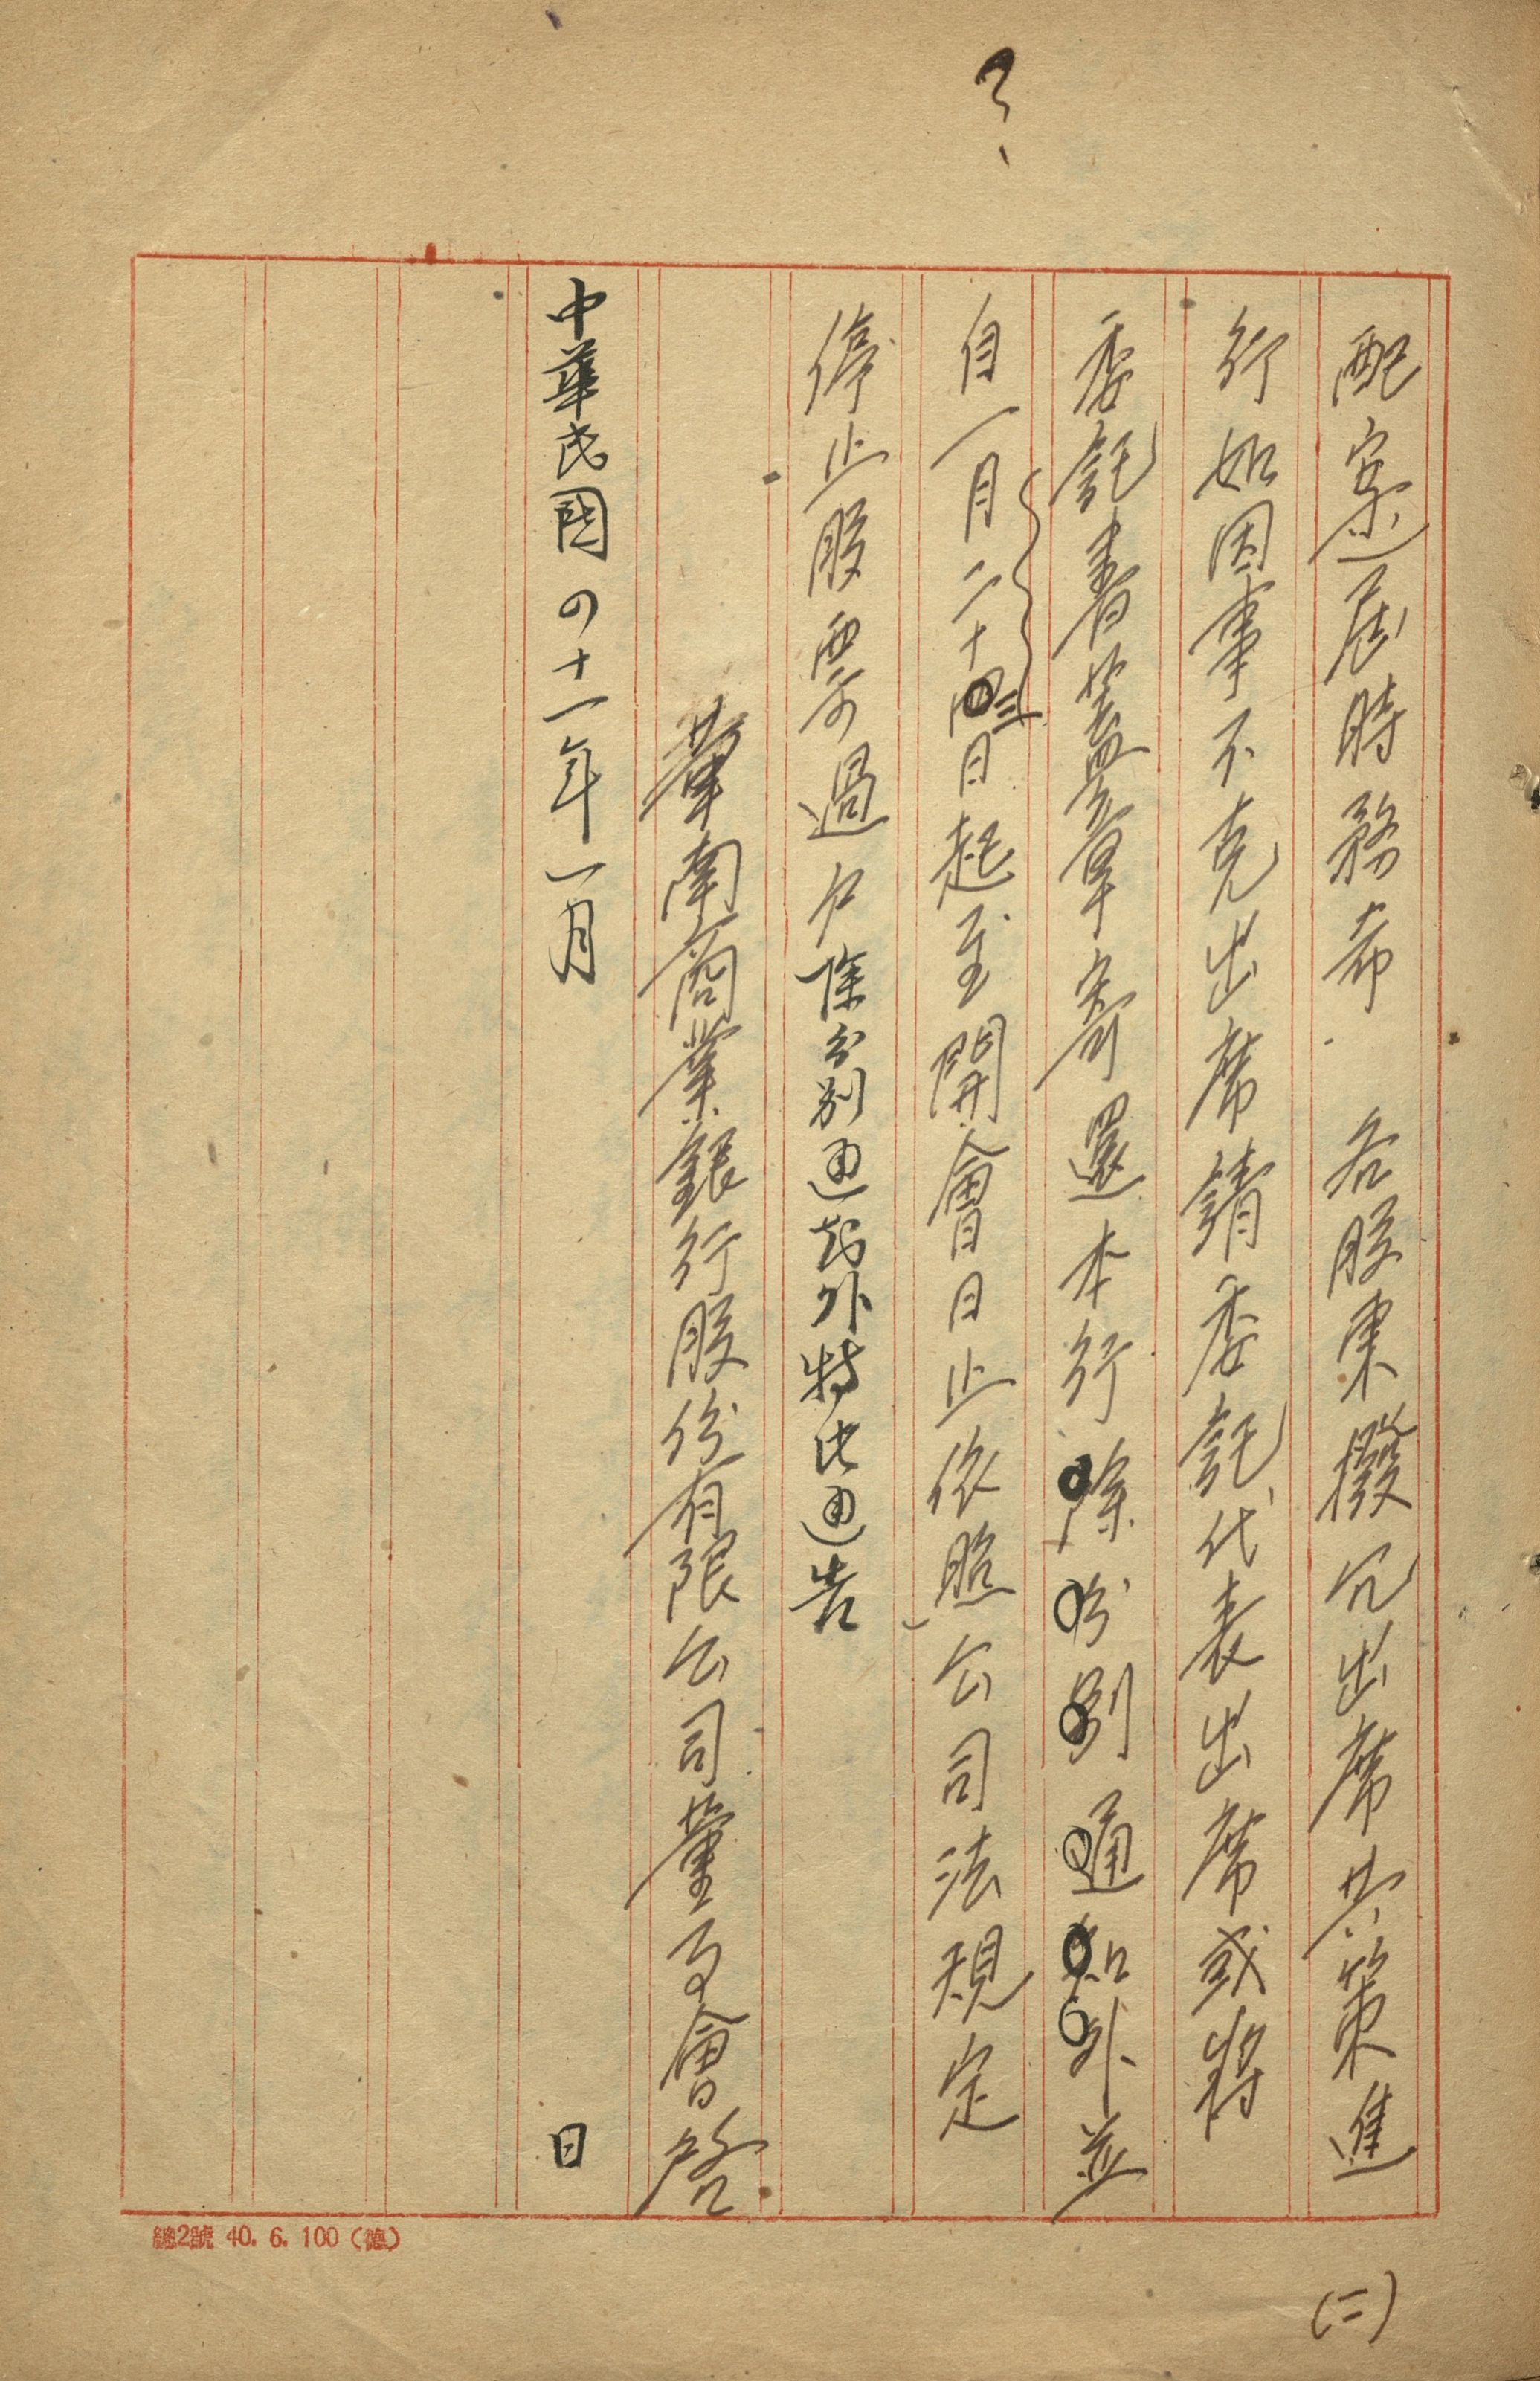 ?
配案屆時務希 各股東撥冗出席共策進
行如因事不克出席請委託代表出席或將
委託書蓋章寄還本行除分別通知外並
自一月二十四三日起至開會日止依照公司法規定
停止股票過戶除分別通知外特此通告
華南商業銀行股份有限公司董事會啓
中華民國四十一年一月 日
總2號 40. 6. 100（德）
(二)